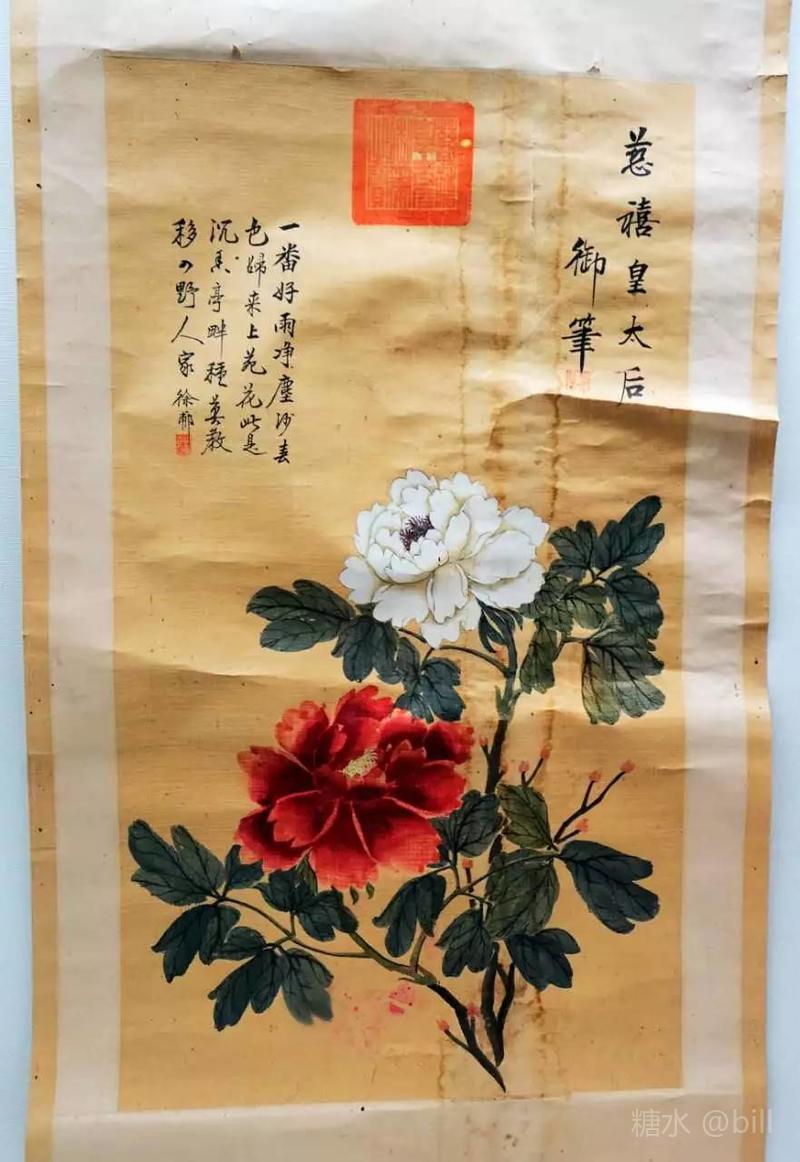 慈禧皇太后
御筆
一番好雨净塵沙春
色歸来上苑花此是
沉香亭畔種莫教
移入野人家 徐郙
糖水 @bill